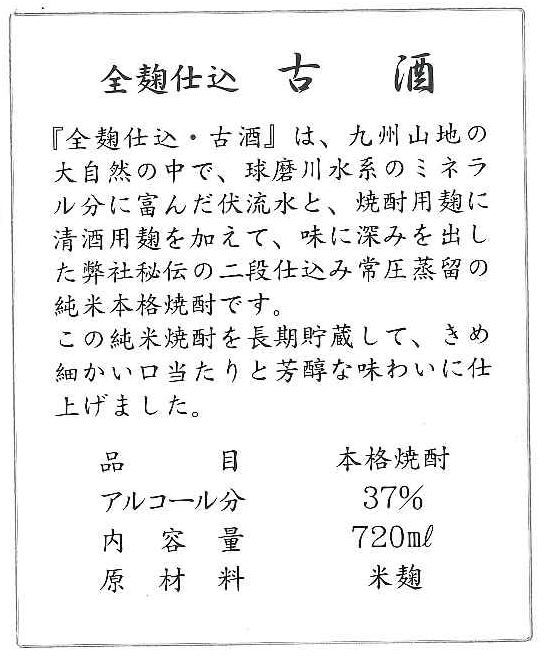 全麹仕込 古 酒
『全麹仕込・古酒』は、九州山地の
大自然の中で、球磨川水系のミネラ
ル分に富んだ伏流水と、焼酎用麹に
清酒用麹を加えて、味に深みを出し
た弊社秘伝の二段仕込み常圧蒸留の
純米本格焼酎です。
この純米焼酎を長期貯蔵して、きめ
細かい口当たりと芳醇な味わいに仕
上げました。
品 目 本格焼酎
アルコール分 37%
内容量 720mℓ
原材料 米麹